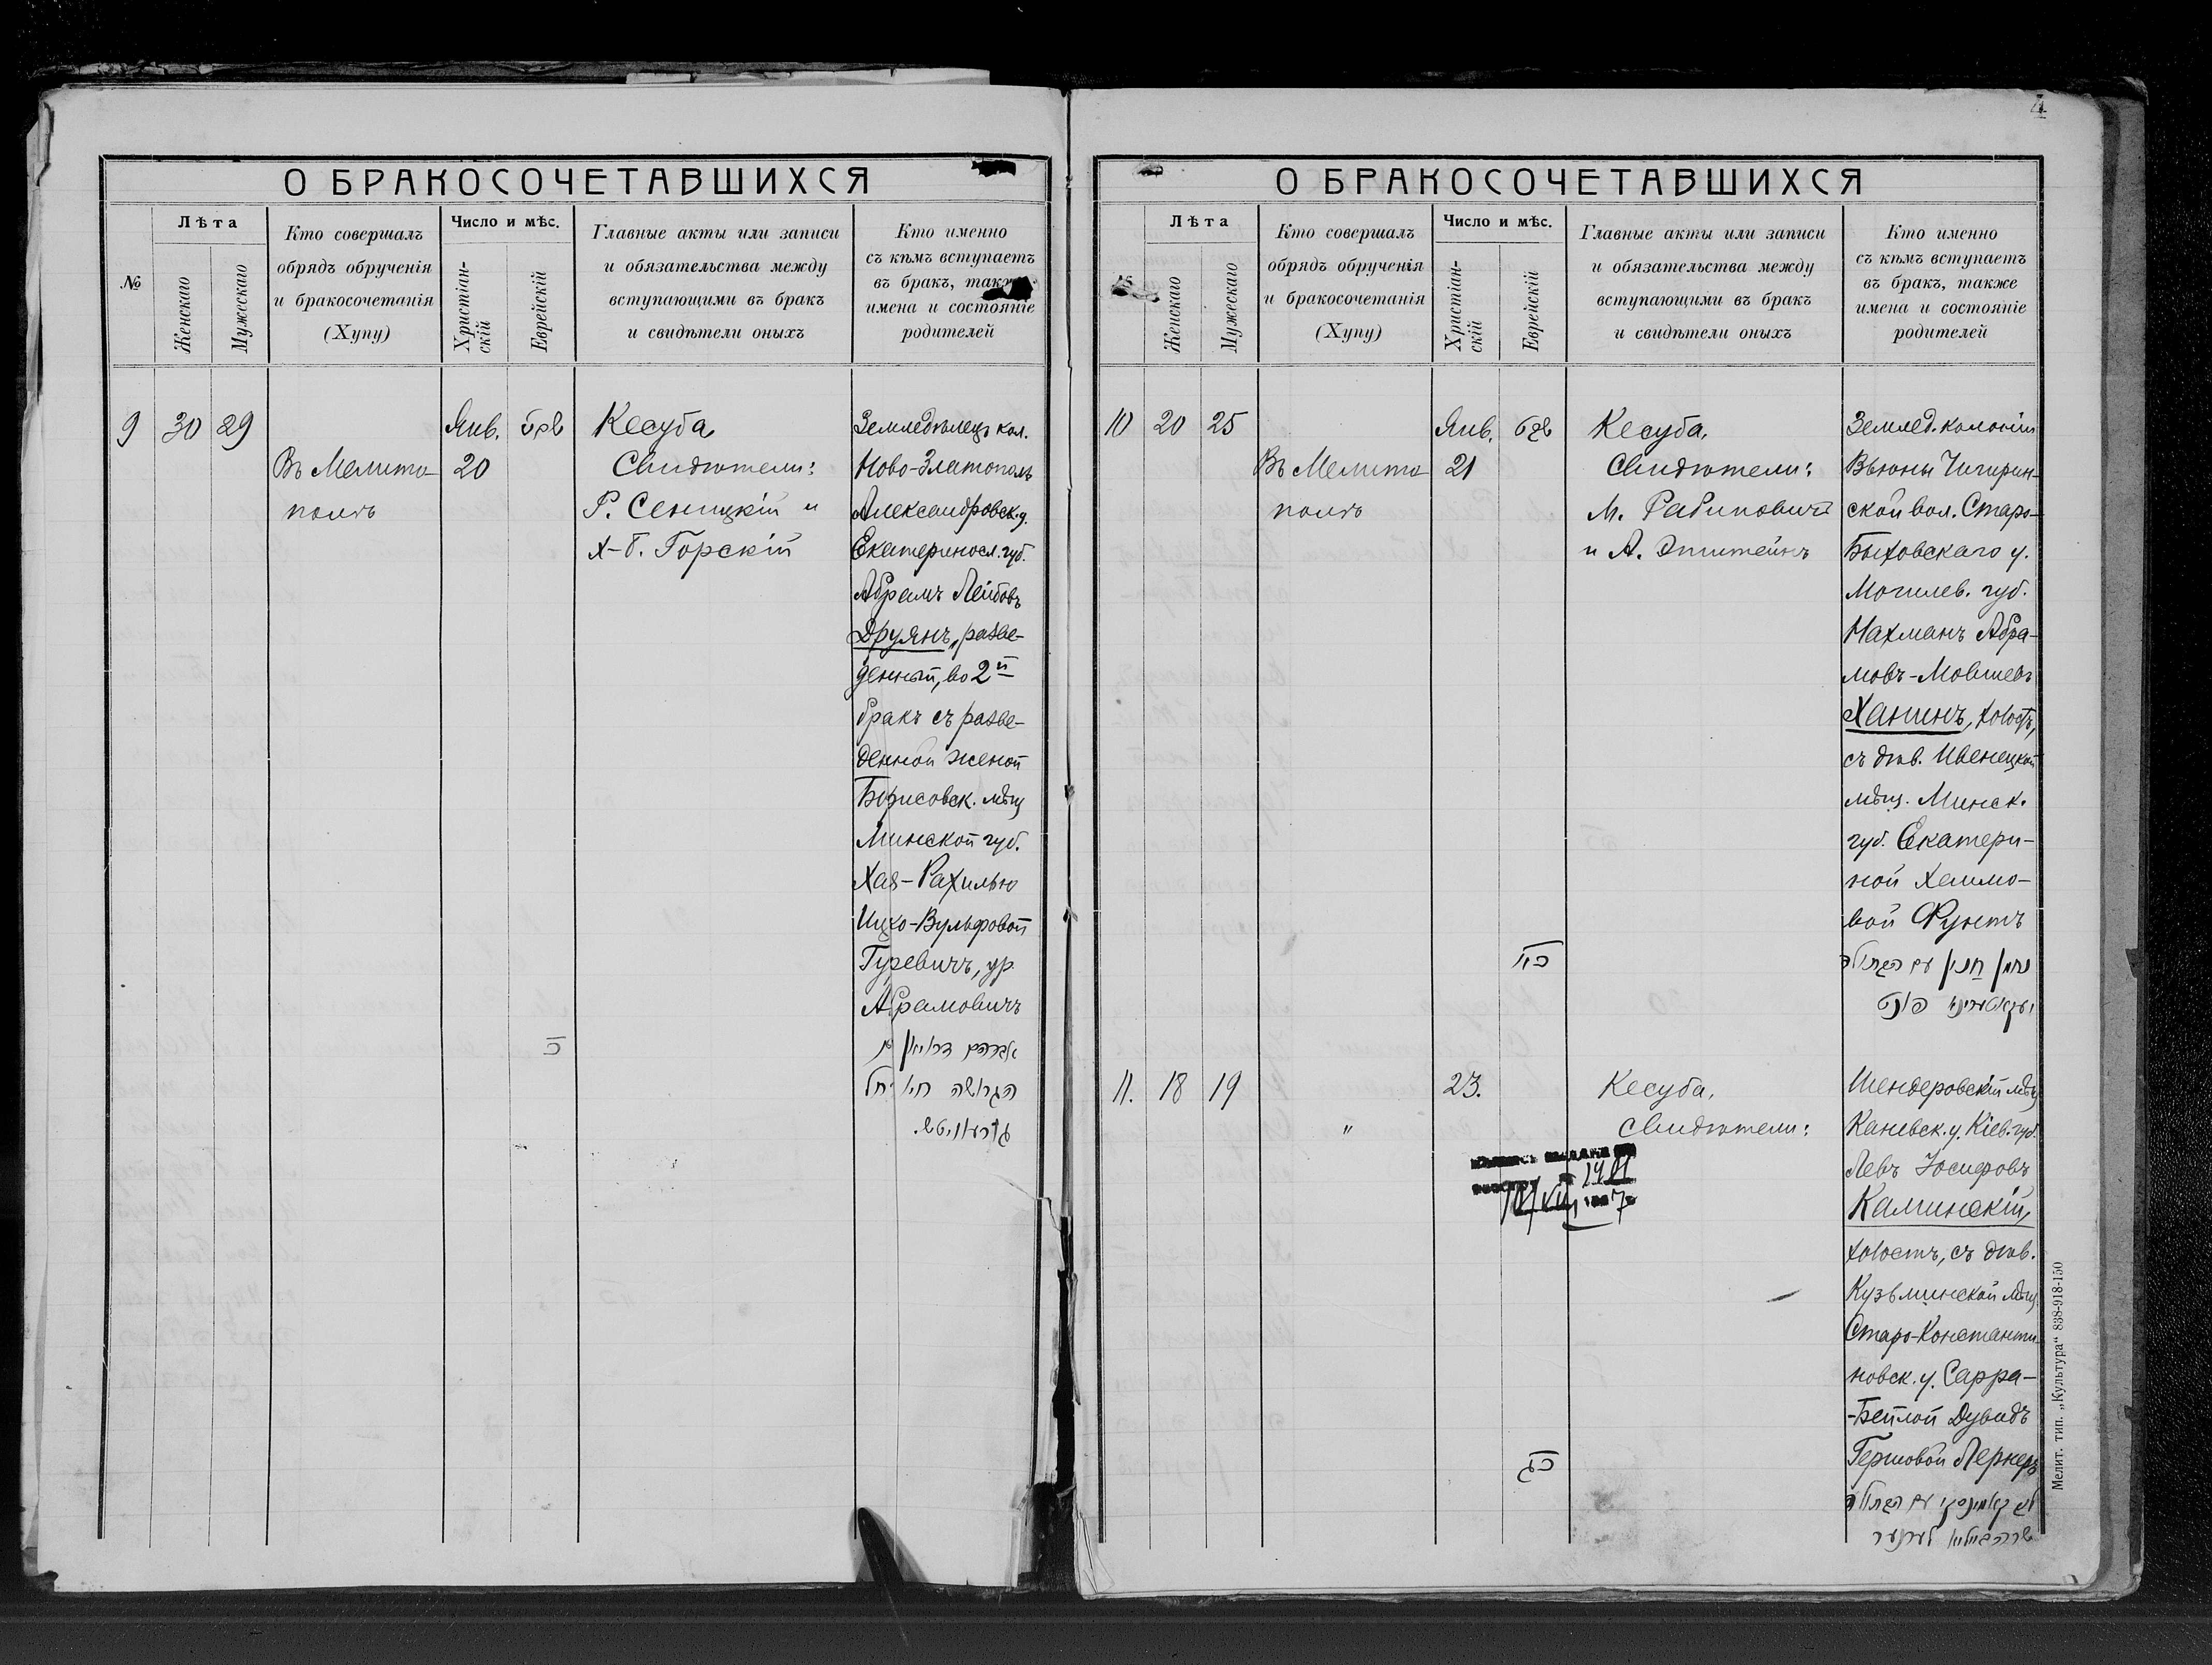 4
О БРАКОСОЧЕТАВШИХСЯ
№
Лѣта
Женскаго
Мужескаго
Кто совершалъ
обрядъ обрученія
и бракосочетанія
(Хупу)
Число и мѣс.
Христіан-
скій
Еврейскій
Главные акты или записи
и обязательства между
вступающими въ бракъ
и свидѣтели оныхъ
Кто именно
съ кѣмъ вступаетъ
въ бракъ, также
имена и состояніе
родителей
9
30
29
Въ Мелито
полѣ
Янв.
20
שבט
כ
Кесуба
Свидѣтели:
Р. Сеницкій и
Х-Б. Горскій
Земледѣлецъ кол.
Ново-Златополь
Александровск. у.
Екатериносл. губ.
Абрамъ Лейбовъ
Друянъ, разве-
денный, во 2й
бракъ съ разве-
денной женой
Борисовск. мѣщ
Минской губ.
Хая-Рахилью
Ицко-Вульфовой
Гуревичъ, ур.
Абрамовичъ
אברהם דרויאן עם
הגרושה חיה רחל
О БРАКОСОЧЕТАВШИХСЯ
Лѣта
Женскаго
Мужескаго
Кто совершалъ
обрядъ обрученія
и бракосочетанія
(Хупу)
Число и мѣс.
Христіан-
скій
Еврейскій
Главные акты или записи
и обязательства между
вступающими въ бракъ
и свидѣтели оныхъ
Кто именно
съ кѣмъ вступаетъ
въ бракъ, также
имена и состояніе
родителей
10
20
25
Въ Мелито
полѣ
Янв.
21
שבט
Кесуба.
Свидѣтели:
М. Рабиновичъ
и А. Эпштейнъ
Землед. колоніи
Вьюны Чигирин-
ской вол. Старо-
Быховскаго у.
Могилев. губ.
Нахманъ Абра-
мовъ-Мовшевъ
Ханинъ, холостъ,
съ дѣв. Ивенецкой
мѣщ. Минск.
губ. Екатери-
ной Хаимо-
вой Фунтъ
נחמן חנין עם הבתולה
יעקאטערינא פונט
11.
18
19
"
23.
כג
Кесуба.
Свидѣтели:
Шендеровскій мѣщ
Каневск. у. Кіев. губ.
Левъ Іосифовъ
Каминскій,
холостъ, съ дѣв.
Кузьминской мѣщ.
Старо-Константи-
новск. у. Сарра-
-Бейлой Дувидъ
Гершовой Лернеръ
קאמינסקי עם הבתולה
לערנער
Мелит. тип. „Культура“ 838-918-150